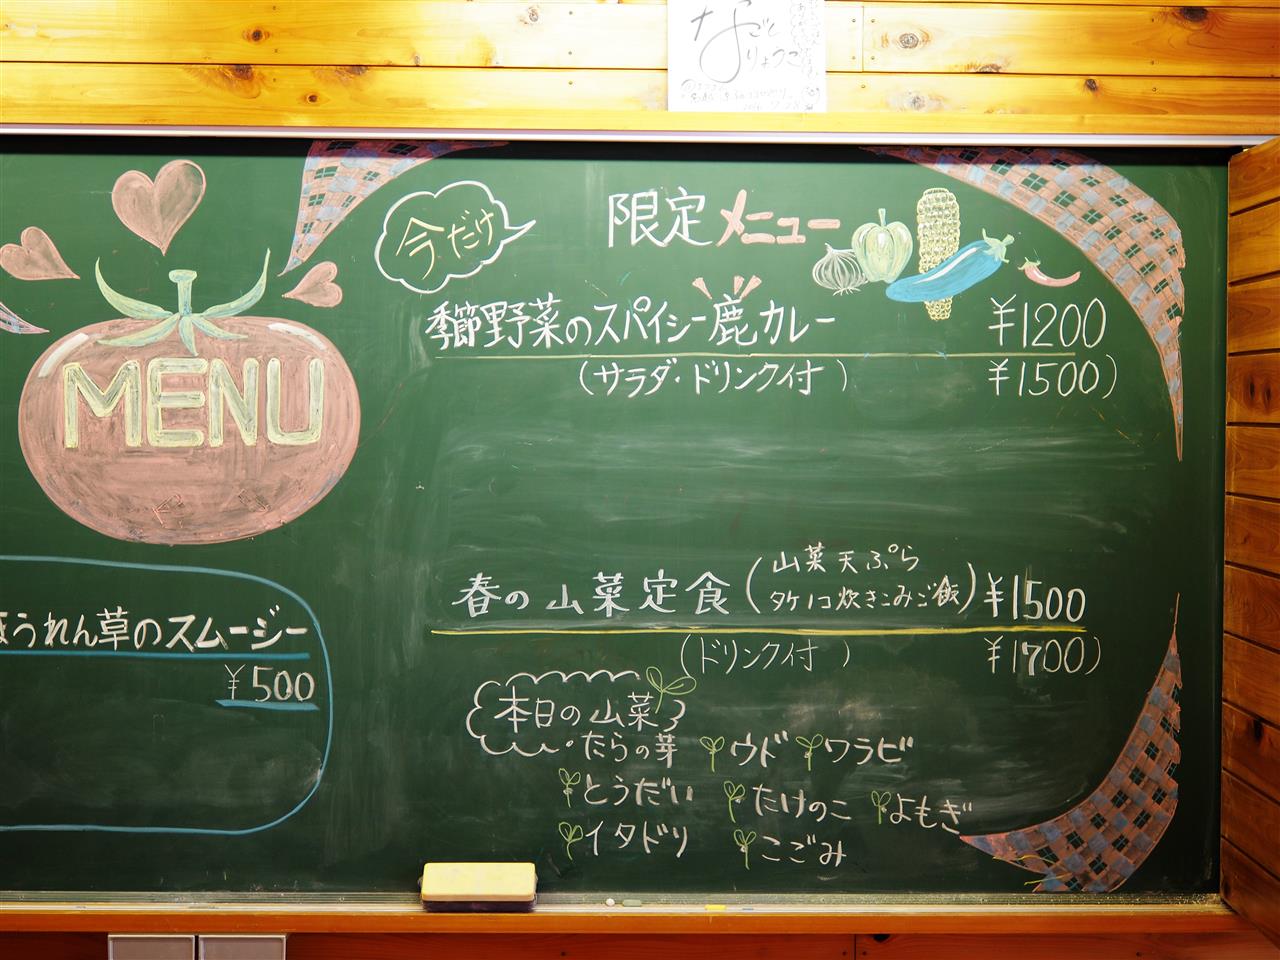 なごと
りょうこ
MENU
ほうれん草のスムージー
¥500
今だけ
限定メニュー
季節野菜のスパイシー鹿カレー ¥1200
(サラダ・ドリンク付) ¥1500)
春の山菜定食(山菜天ぷら
タケノコ炊きこみご飯)¥1500
(ドリンク付) ¥1700)
本日の山菜
たらの芽 ウド ワラビ
とうだい たけのこ よもぎ
イタドリ こごみ